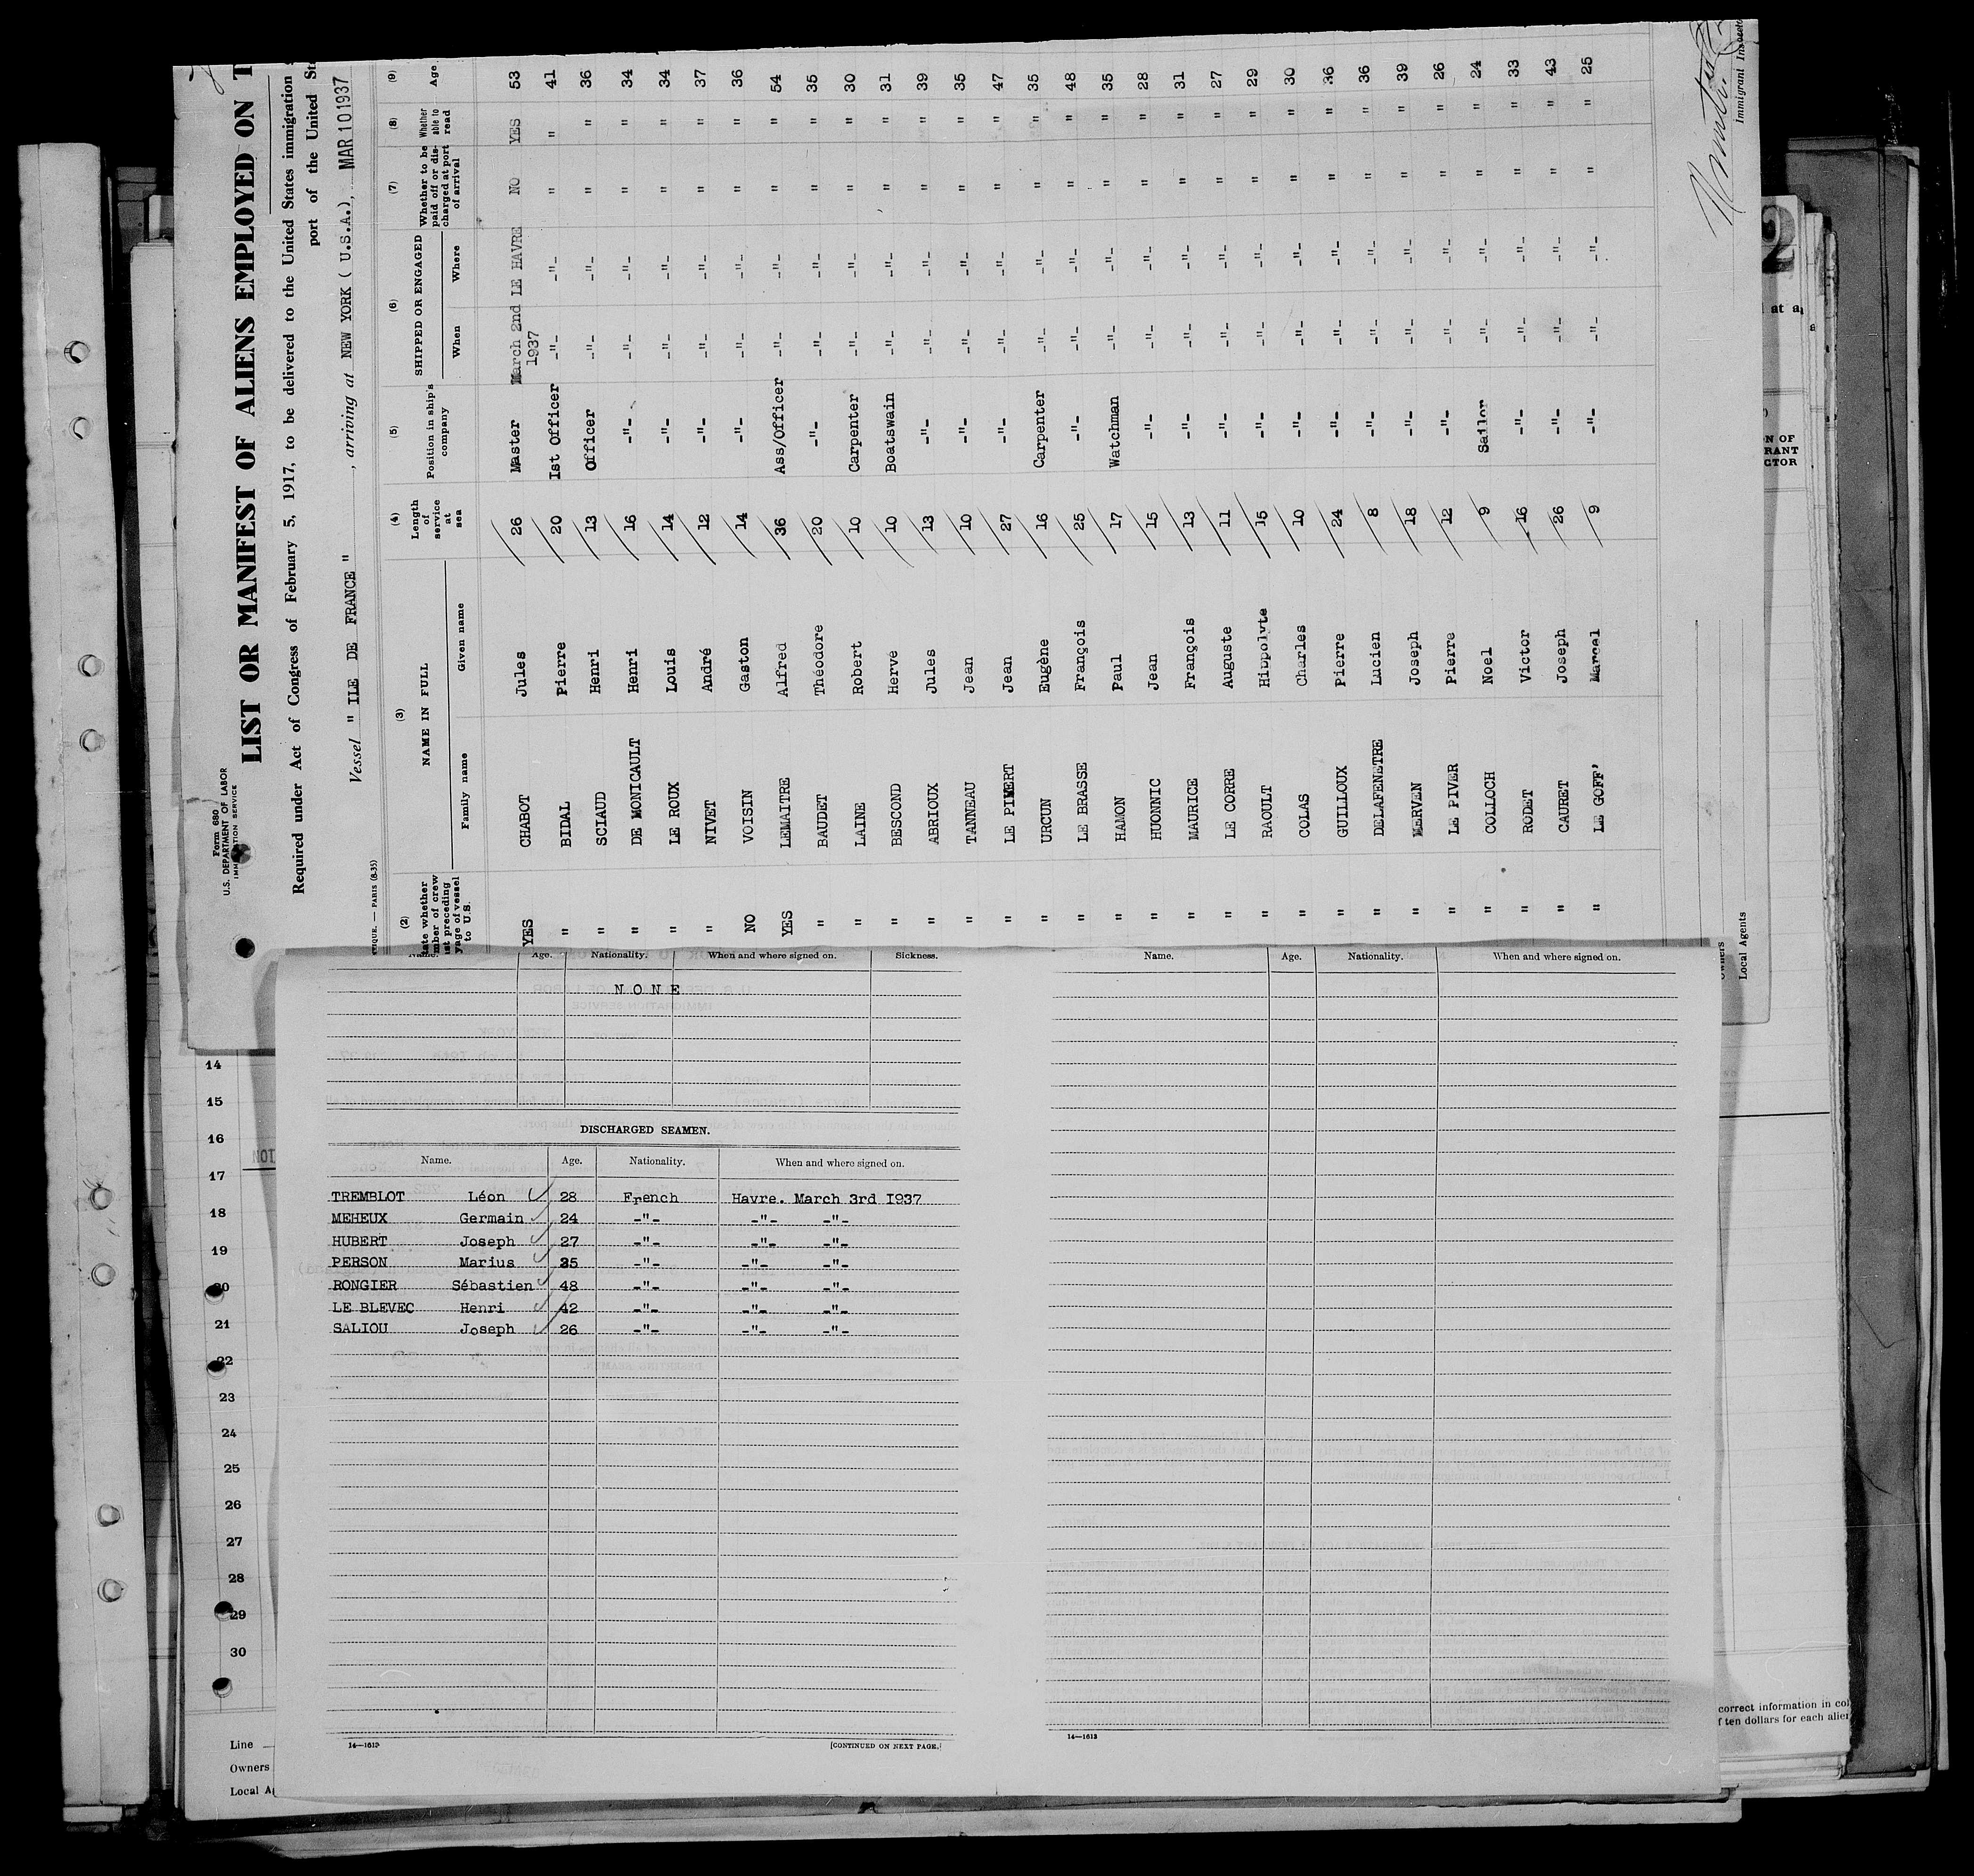 Form 680
U.S. DEPARTMENT OF LABOR
IMMIGRATION SERVICE
LIST OR MANIFEST OF ALIENS EMPLOYED ON T
Required under Act of Congress of February 5, 1917, to be delivered to the United States immigration
port of the United St
Vessel " ILE DE FRANCE ", arriving at NEW YORK ( U.S.A.), MAR 10 1937
TIQUE. — PARIS (8-35)
(2) (3) (4) (5) (6) (7) (8) (9)
ate whether mber of crew st preceding yage of vessel to U.S. NAME IN FULL Family name Given name Length of service at sea Position in ship's company SHIPPED OR ENGAGED When Where Whether to be paid off or discharged at port of arrival Whether able to read Age
YES CHABOT Jules 26 Master March 2nd 1937 LE HAVRE NO YES 53
" BIDAL Pierre 20 Ist Officer -"- -"- " " 41
" SCIAUD Henri 13 Officer -"- -"- " " 36
" DE MONICAULT Henri 16 -"- -"- -"- " " 34
" LE ROUX Louis 14 -"- -"- -"- " " 34
" NIVET André 12 -"- -"- -"- " " 37
NO VOISIN Gaston 14 -"- -"- -"- " " 36
YES LEMAITRE Alfred 36 Ass/Officer -"- -"- " " 54
" BAUDET Théodore 20 -"- -"- -"- " " 35
" LAINE Robert 10 Carpenter -"- -"- " " 30
" BESCOND Hervé 10 Boatswain -"- -"- " " 31
" ABRIOUX Jules 13 -"- -"- -"- " " 39
" TANNEAU Jean 10 -"- -"- -"- " " 35
" LE PIVERT Jean 27 -"- -"- -"- " " 47
" URCUN Eugène 16 Carpenter -"- -"- " " 35
" LE BRASSE François 25 -"- -"- -"- " " 48
" HAMON Paul 17 Watchman -"- -"- " " 35
" HUONNIC Jean 15 -"- -"- -"- " " 28
" MAURICE François 13 -"- -"- -"- " " 31
" LE CORRE Auguste 11 -"- -"- -"- " " 27
" RAOULT Hippolyte 15 -"- -"- -"- " " 29
" COLAS Charles 10 -"- -"- -"- " " 30
" GUILLOUX Pierre 24 -"- -"- -"- " " 36
" DELAFENETRE Lucien 8 -"- -"- -"- " " 36
" MERVEN Joseph 18 -"- -"- -"- " " 39
" LE PIVER Pierre 12 -"- -"- -"- " " 26
" COLLOCH Noel 9 Sailor -"- -"- " " 24
" RODET Victor 16 -"- -"- -"- " " 33
" CAURET Joseph 26 -"- -"- -"- " " 43
" LE GOFF' Marcel 9 -"- -"- -"- " " 25
Owners
Local Agents
Immigrant Inspector
2
at a
N OF
RANT
CTOR
Name. Age. Nationality. When and where signed on. Sickness.
N O N E
DISCHARGED SEAMEN.
Name. Age. Nationality. When and where signed on.
TREMBLOT Léon 28 French Havre. March 3rd I937
MEHEUX Germain 24 -"- -"- -"-
HUBERT Joseph 27 -"- -"- -"-
PERSON Marius 35 -"- -"- -"-
RONGIER Sébastien 48 -"- -"- -"-
LE BLEVEC Henri 42 -"- -"- -"-
SALIOU Joseph 26 -"- -"- -"-
14—1613
[CONTINUED ON NEXT PAGE.]
Name. Age. Nationality. When and where signed on.
14—1613
14
15
16
17
18
19
20
21
22
23
24
25
26
27
28
29
30
Line
Owners
Local A
correct information in col
f ten dollars for each alien